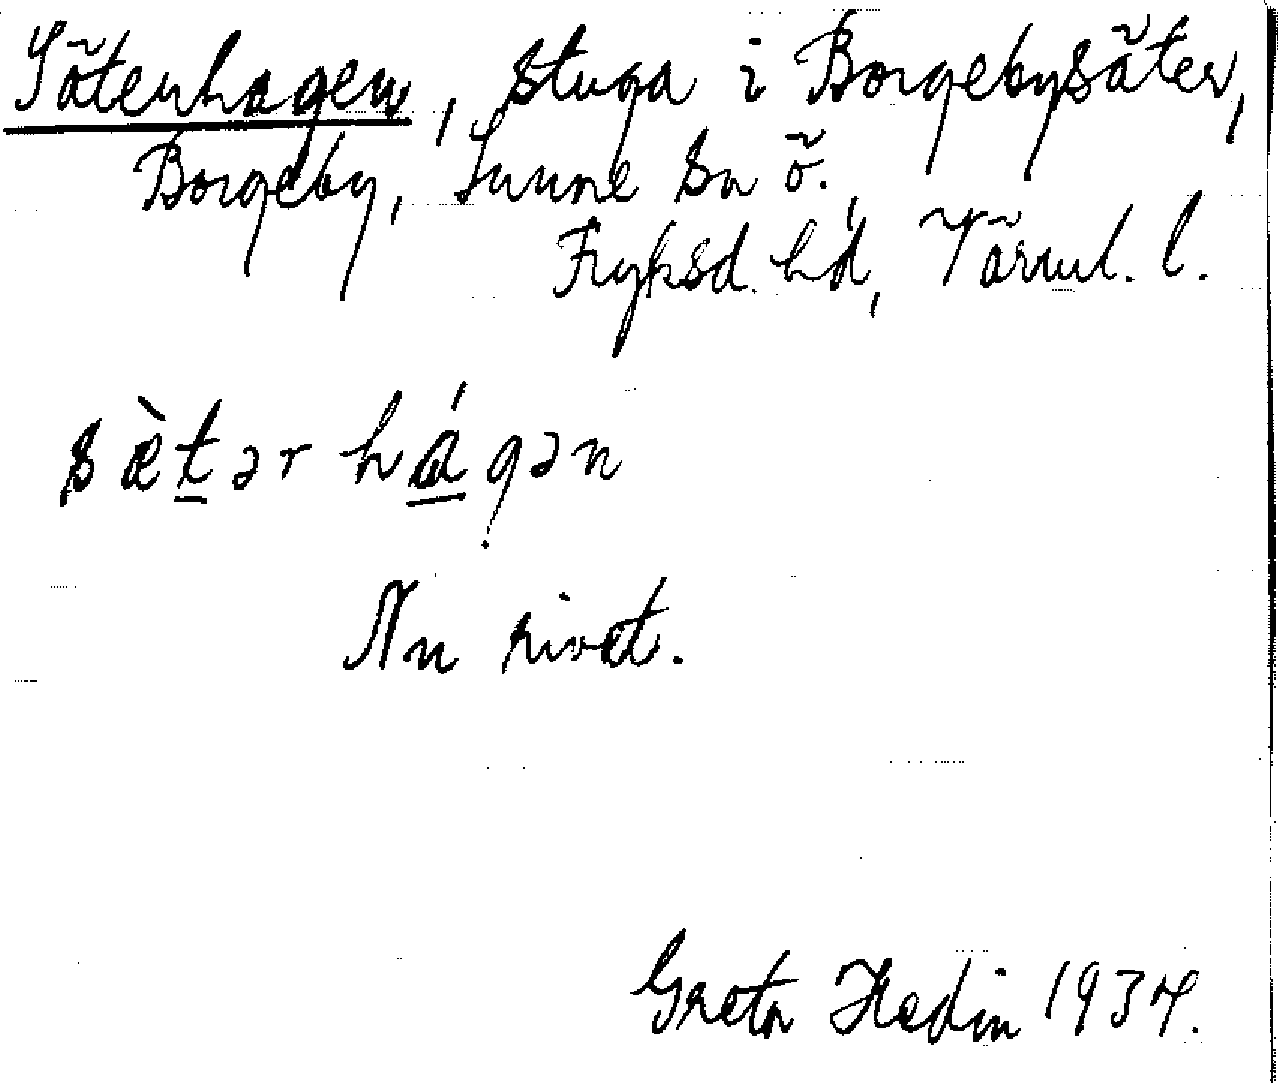 Säterhagen, stuga i Borgebysäter,
Borgeby, Sunne sn ö.,
Fryksd. hd, Värml. l.
sæ̀tər hágən
Nu rivet.
Greta Hedin 1934.